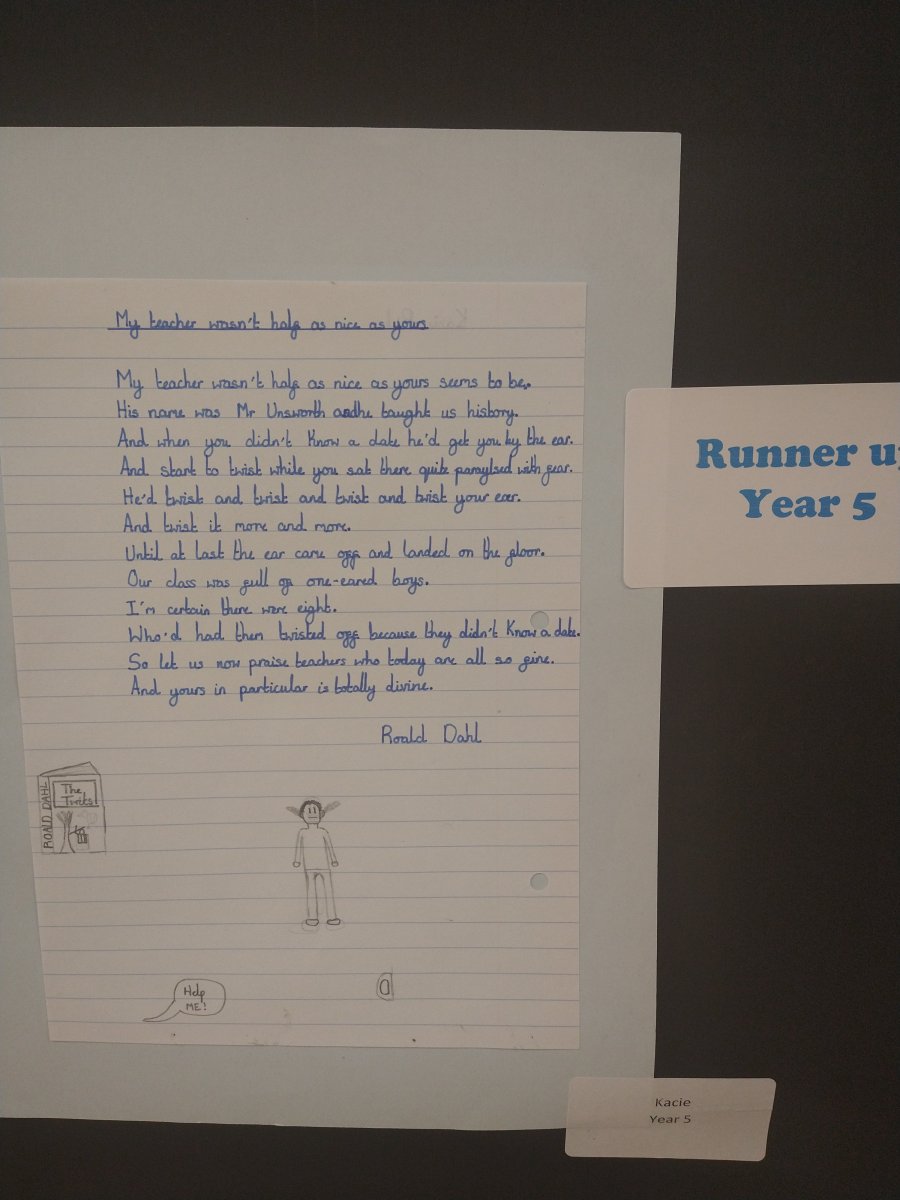 My teacher wasn't half as nice as yours
My teacher wasn't half as nice as yours seems to be.
His name was Mr Unsworth and he taught us history.
And when you didn't Know a date he'd get you by the ear.
And start to twist while you sat there quite paraylsed with fear.
He'd twist and twist and twist and twist your ear.
And twist it more and more.
Until at last the ear came off and landed on the floor.
Our class was full of one-eared boys.
I'm certain there were eight.
Who'd had them twisted off because they didn't Know a date.
So let us now praise teachers who today are all so fine.
And yours in particular is totally divine.
Roald Dahl
ROALD DAHL
The
Twits!
Help
ME!
Runner u
Year 5
Kacie
Year 5